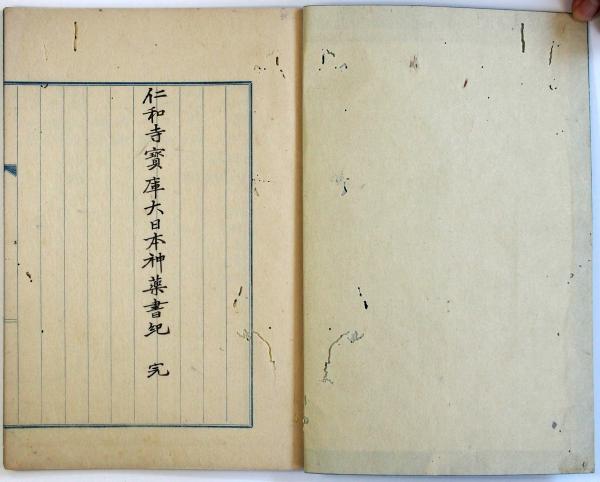 仁和寺寶庫大日本神藥書紀 完